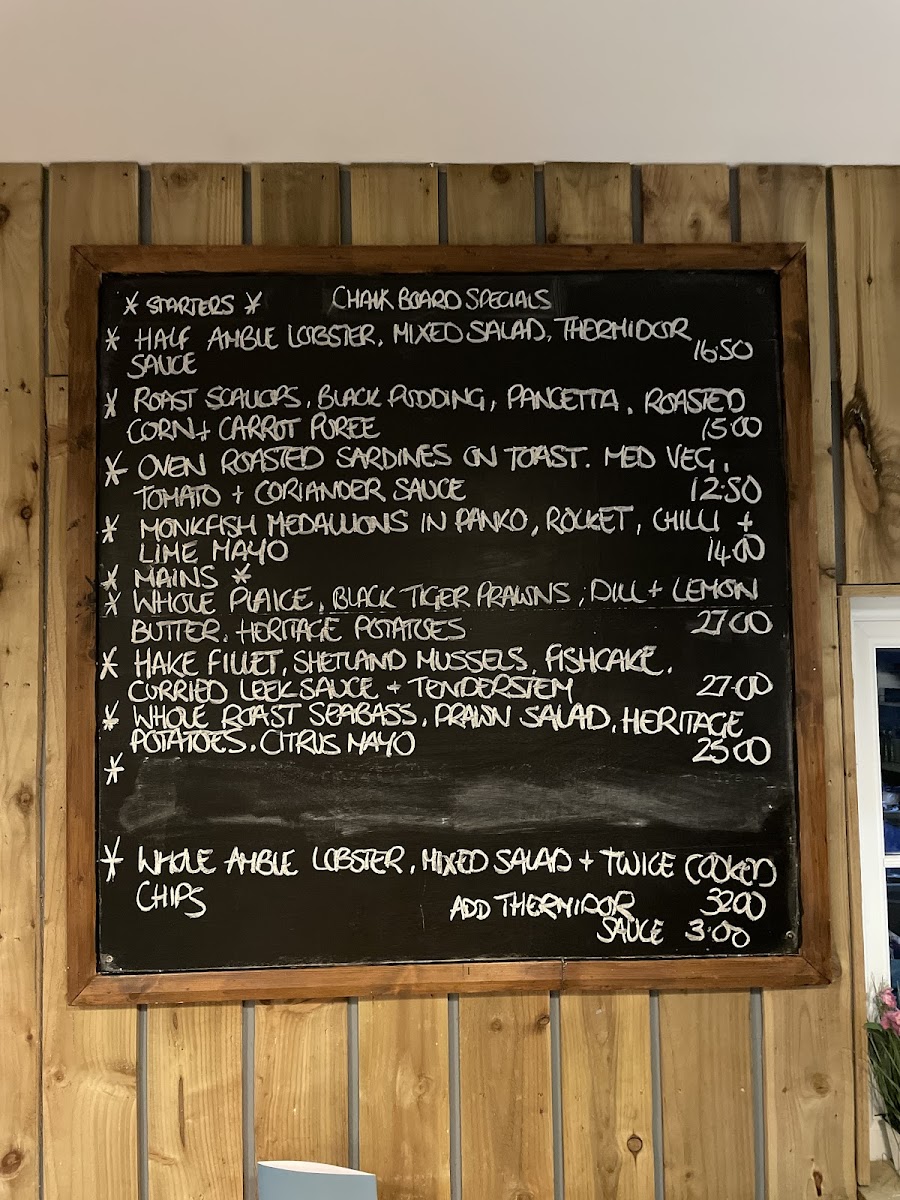 * STARTERS * CHALK BOARD SPECIALS
* HALF AMBLE LOBSTER, MIXED SALAD, THERMIDOR
SAUCE 16.50
* ROAST SCALLOPS, BLACK PUDDING, PANCETTA, ROASTED
CORN + CARROT PUREE 15.00
* OVEN ROASTED SARDINES ON TOAST. MED VEG,
TOMATO + CORIANDER SAUCE 12.50
* MONKFISH MEDALLIONS IN PANKO, ROCKET, CHILLI +
LIME MAYO 14.00
* MAINS *
* WHOLE PLAICE, BLACK TIGER PRAWNS, DILL + LEMON
BUTTER. HERITAGE POTATOES 27.00
* HAKE FILLET, SHETLAND MUSSELS, FISHCAKE,
CURRIED LEEK SAUCE + TENDERSTEM 27.00
* WHOLE ROAST SEABASS, PRAWN SALAD, HERITAGE
POTATOES, CITRUS MAYO 25.00
*
* WHOLE AMBLE LOBSTER, MIXED SALAD + TWICE COOKED
CHIPS 32.00
ADD THERMIDOR
SAUCE 3.00